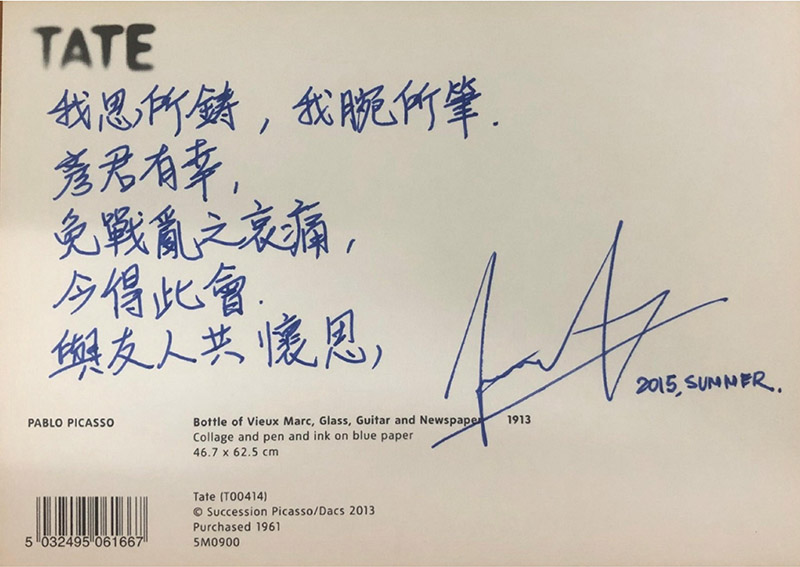 TATE
我思所鑄，我腕所筆.
彥君有幸，
免戰亂之哀痛，
今得此會.
與友人共懷思，
2015, SUMMER.
PABLO PICASSO
Bottle of Vieux Marc, Glass, Guitar and Newspaper 1913
Collage and pen and ink on blue paper
46.7 x 62.5 cm
Tate (T00414)
© Succession Picasso/Dacs 2013
Purchased 1961
5M0900
5 032495 061667